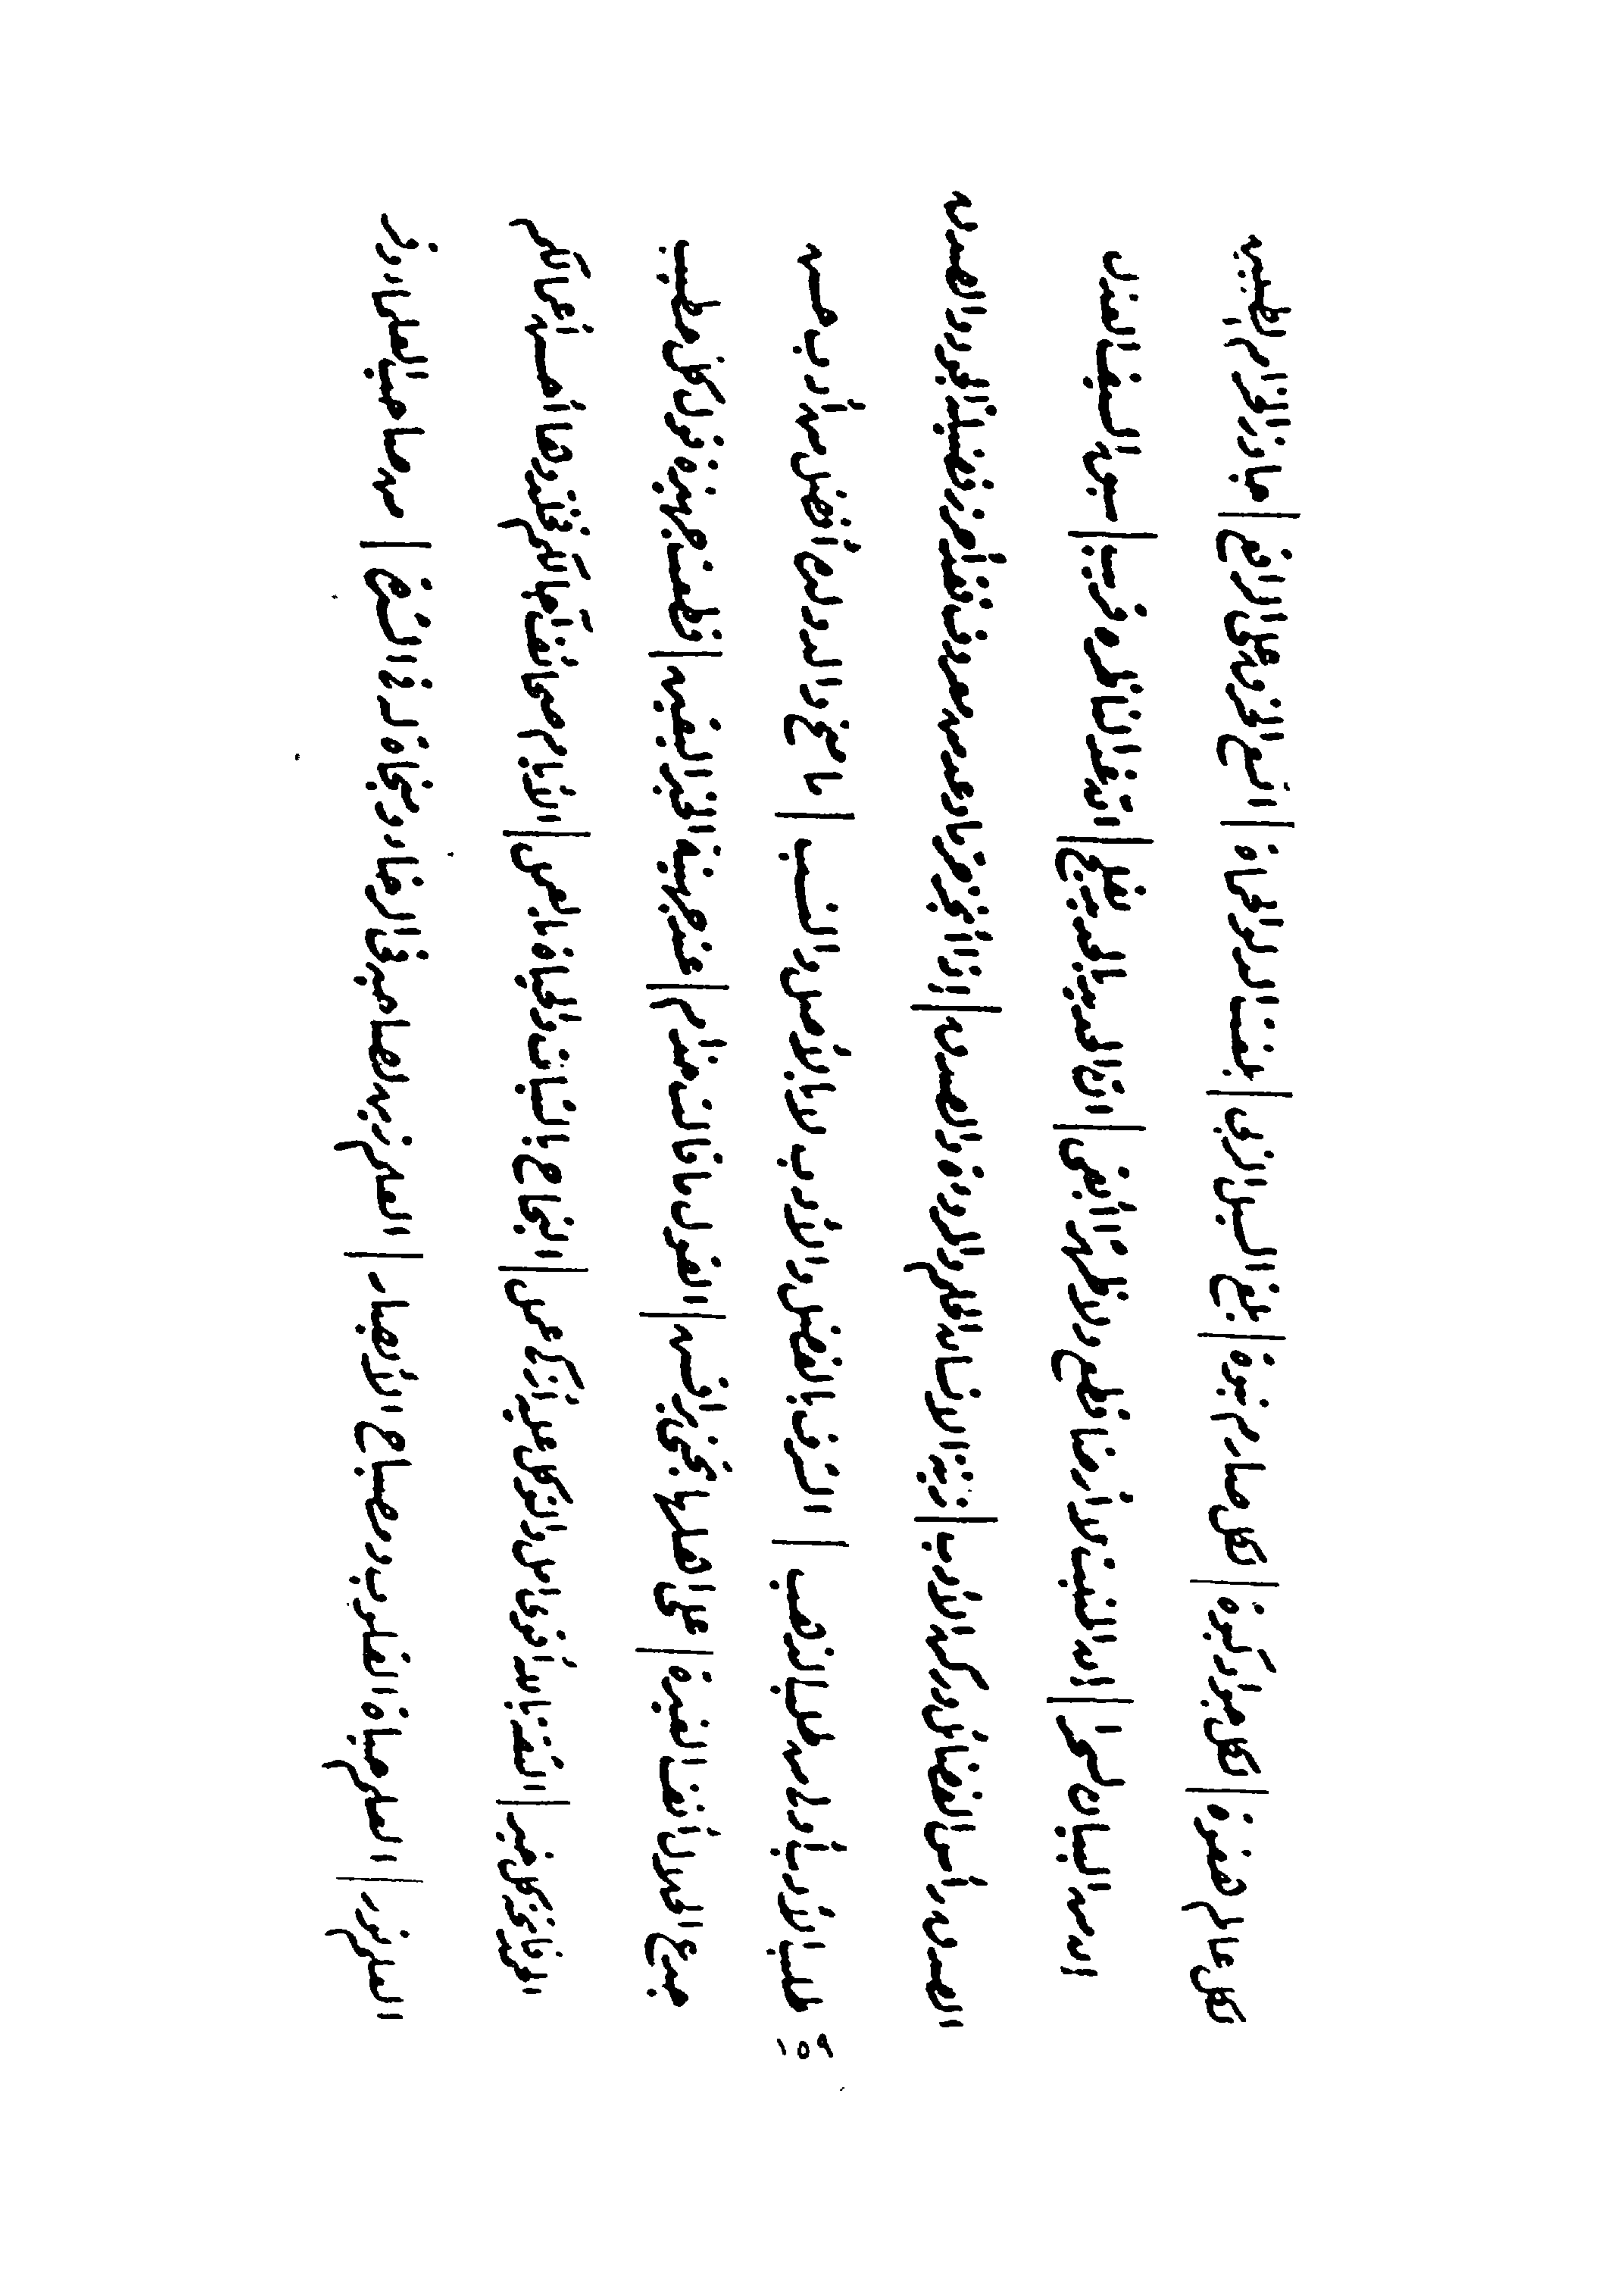 لكل عالم هفوة | لكل جواد كبوة | لكل صارم نبوة | بلغ السيل الزبى | بلغت الدلو الحمأة | اتسع الخرق على الراقع | جاوز الحزام الطبيين
ان من البيان لسحرا | ان المنبت لا أرضا قطع ولا ظهرا أبقى | ان الحديد بالحديد يفلح | ان غدا لناظره قريب | سبق السيف العذل
الصدق رأس الفضائل وركن الأدب | زينة الانسان الحلم والمروءة والصدق | اذا أنجز حر ما وعد من معروف فقد أحرز فضيلة الجود والصدق
طلب الأدب أولى من طلب الذهب | الشرف بالفضل والأدب لا بالأصل والنسب | ما منح والد ولده أفضل من أدب حسن
جدع الحلال أنف الغيرة | على اهلها تجني براقش | القول ما قالت حذام | عند جهينة الخبر اليقين | قطعت جهيزة قول كل خطيب
كل خير | الثقة بالله أقوى أمل والتوكل عليه أزكى عمل | النجاح بالثبات والحياة بالعمل | الأيام صحائف آجالكم فخلدوها أحسن أعمالكم
العلم نور | العلم حياة القلوب ومصباح الأبصار | العلم زين لصاحبه في الرخاء ونجاة له في الشدة | من صاحب العلماء وقر